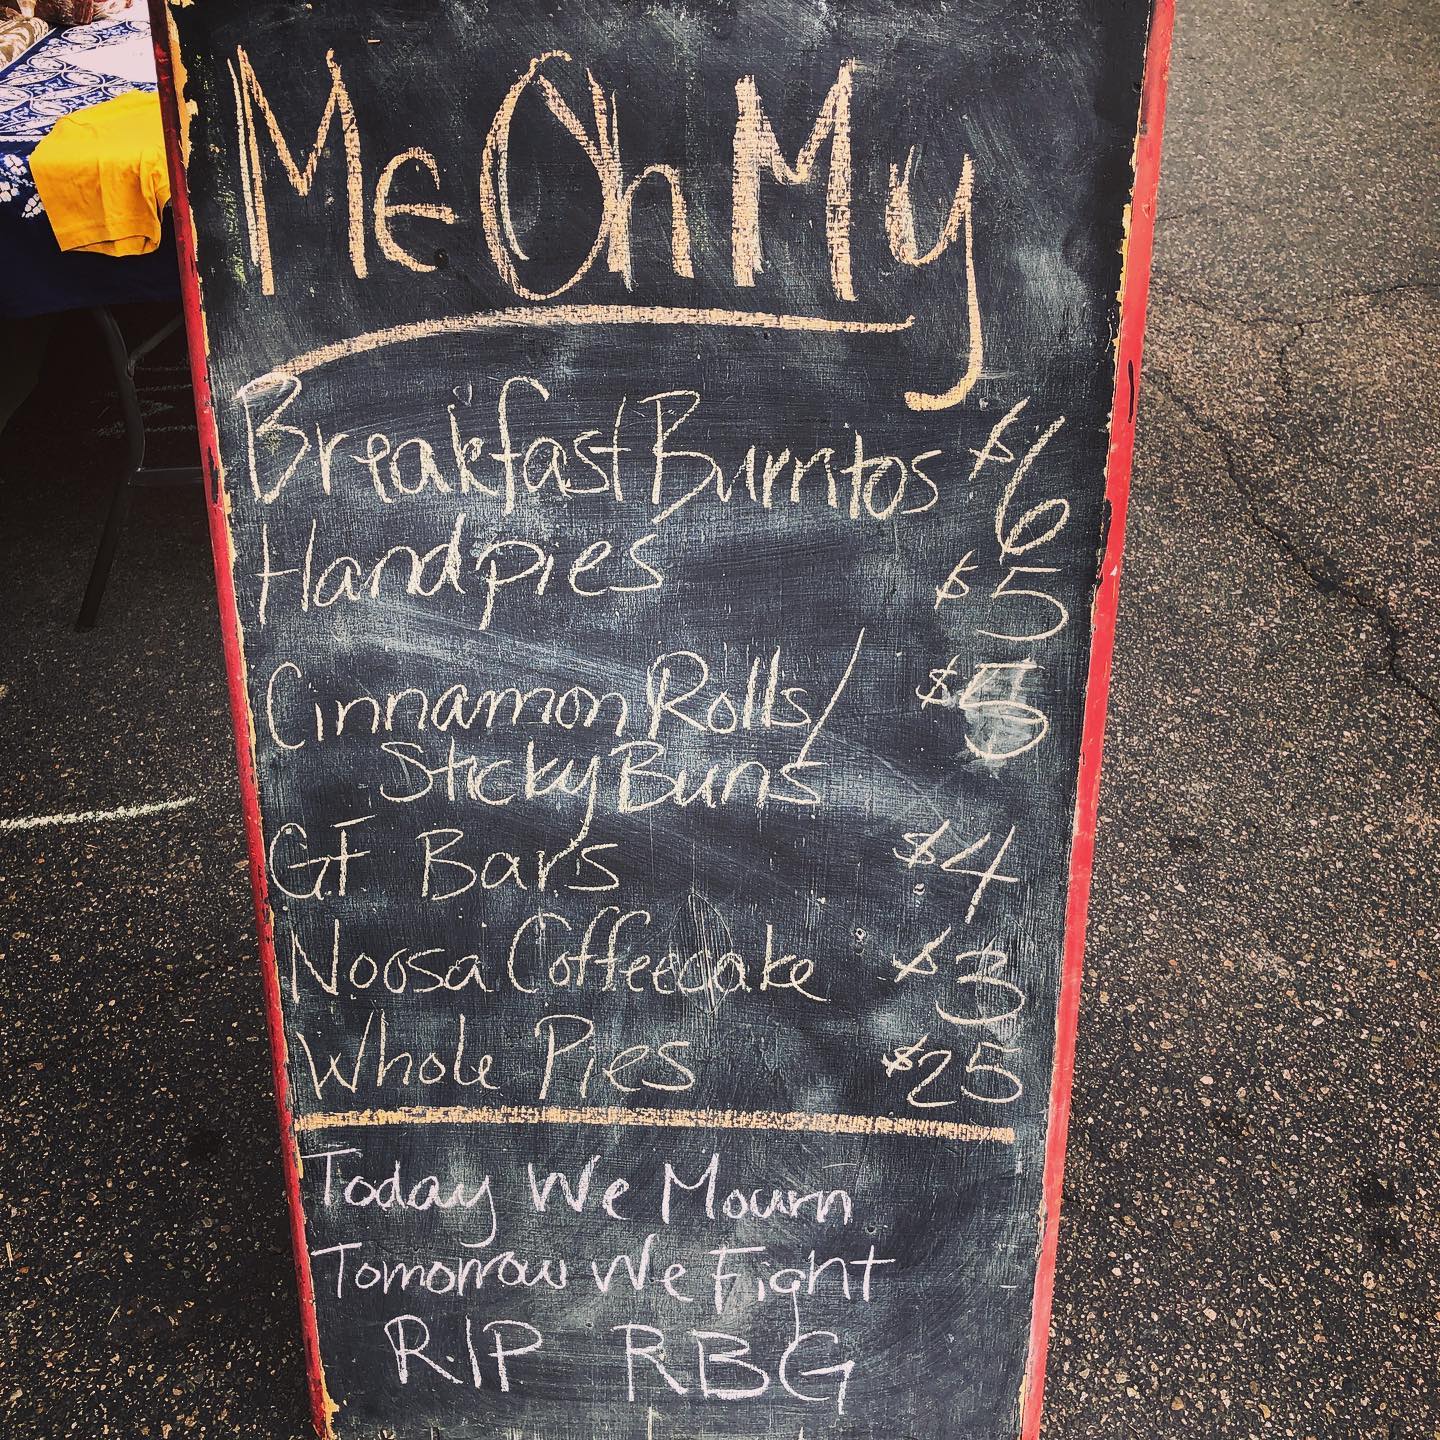 Me Oh My
Breakfast Burritos $6
Handpies $5
Cinnamon Rolls/ $5
Sticky Buns
GF Bars $4
Noosa Coffeecake $3
Whole Pies $25
Today We Mourn
Tomorrow We Fight
RIP RBG